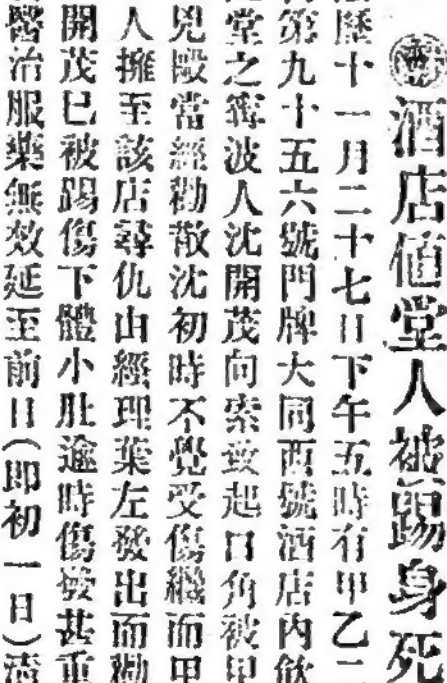 酒店值堂人被踢身死
歷十一月二十七日下午五時有甲乙二
第九十五六號門牌大同西號酒店內飲
堂之寗波人沈開茂向索致起口角被甲
兇毆當經勸散沈初時不覺受傷繼而甲
人擁至該店尋仇由經理葉左發出而勸
開茂已被踢傷下體小肚逾時傷發甚重
醫治服藥無效延至前日(即初一日)清